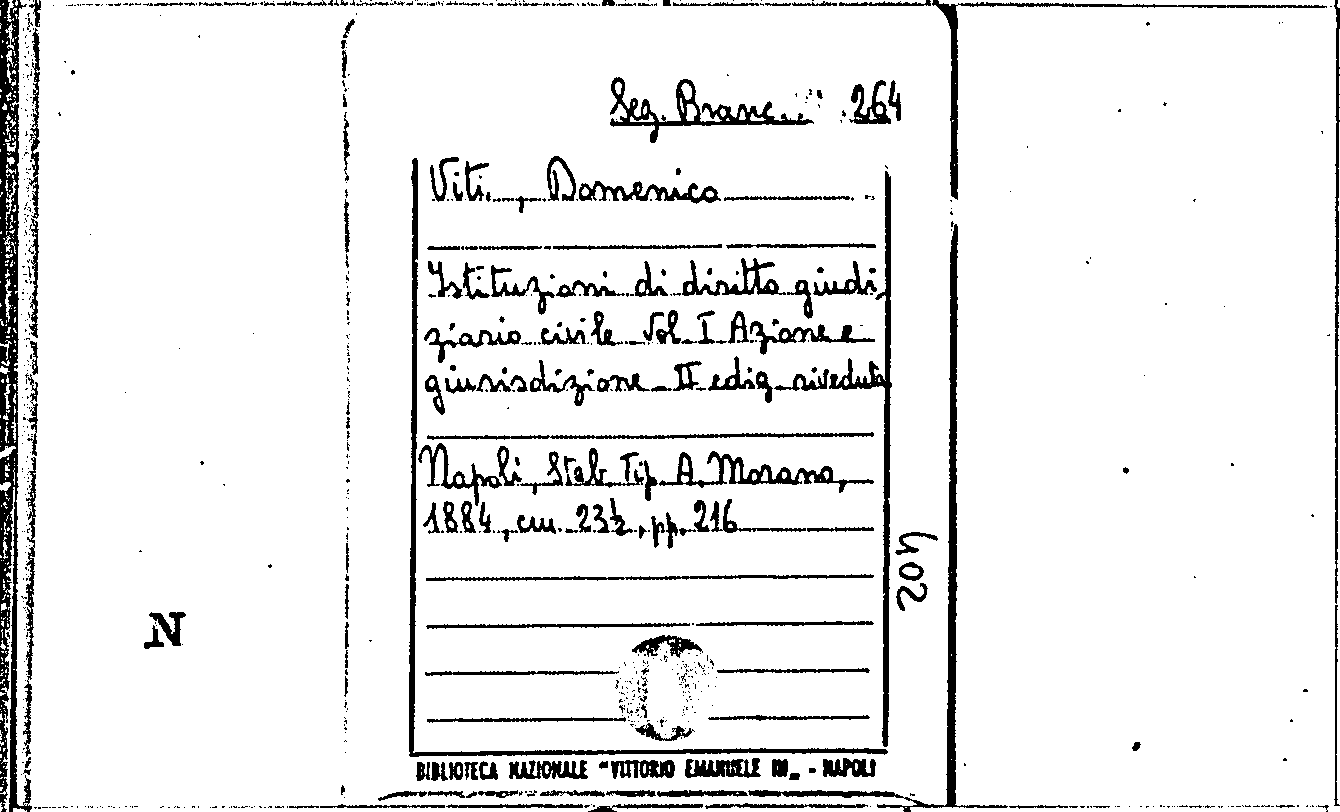 Seg. Branc... 264
Viti, Domenico
Istituzioni di diritto giudi,
ziario civile Vol. I Azione e
giurisdizione - II ediz. riveduta
Napoli, Stab. Tip. A. Morano,
1884, cm. 23½, pp. 216
402
N
BIBLIOTECA NAZIONALE "VITTORIO EMANUELE III„ - NAPOLI